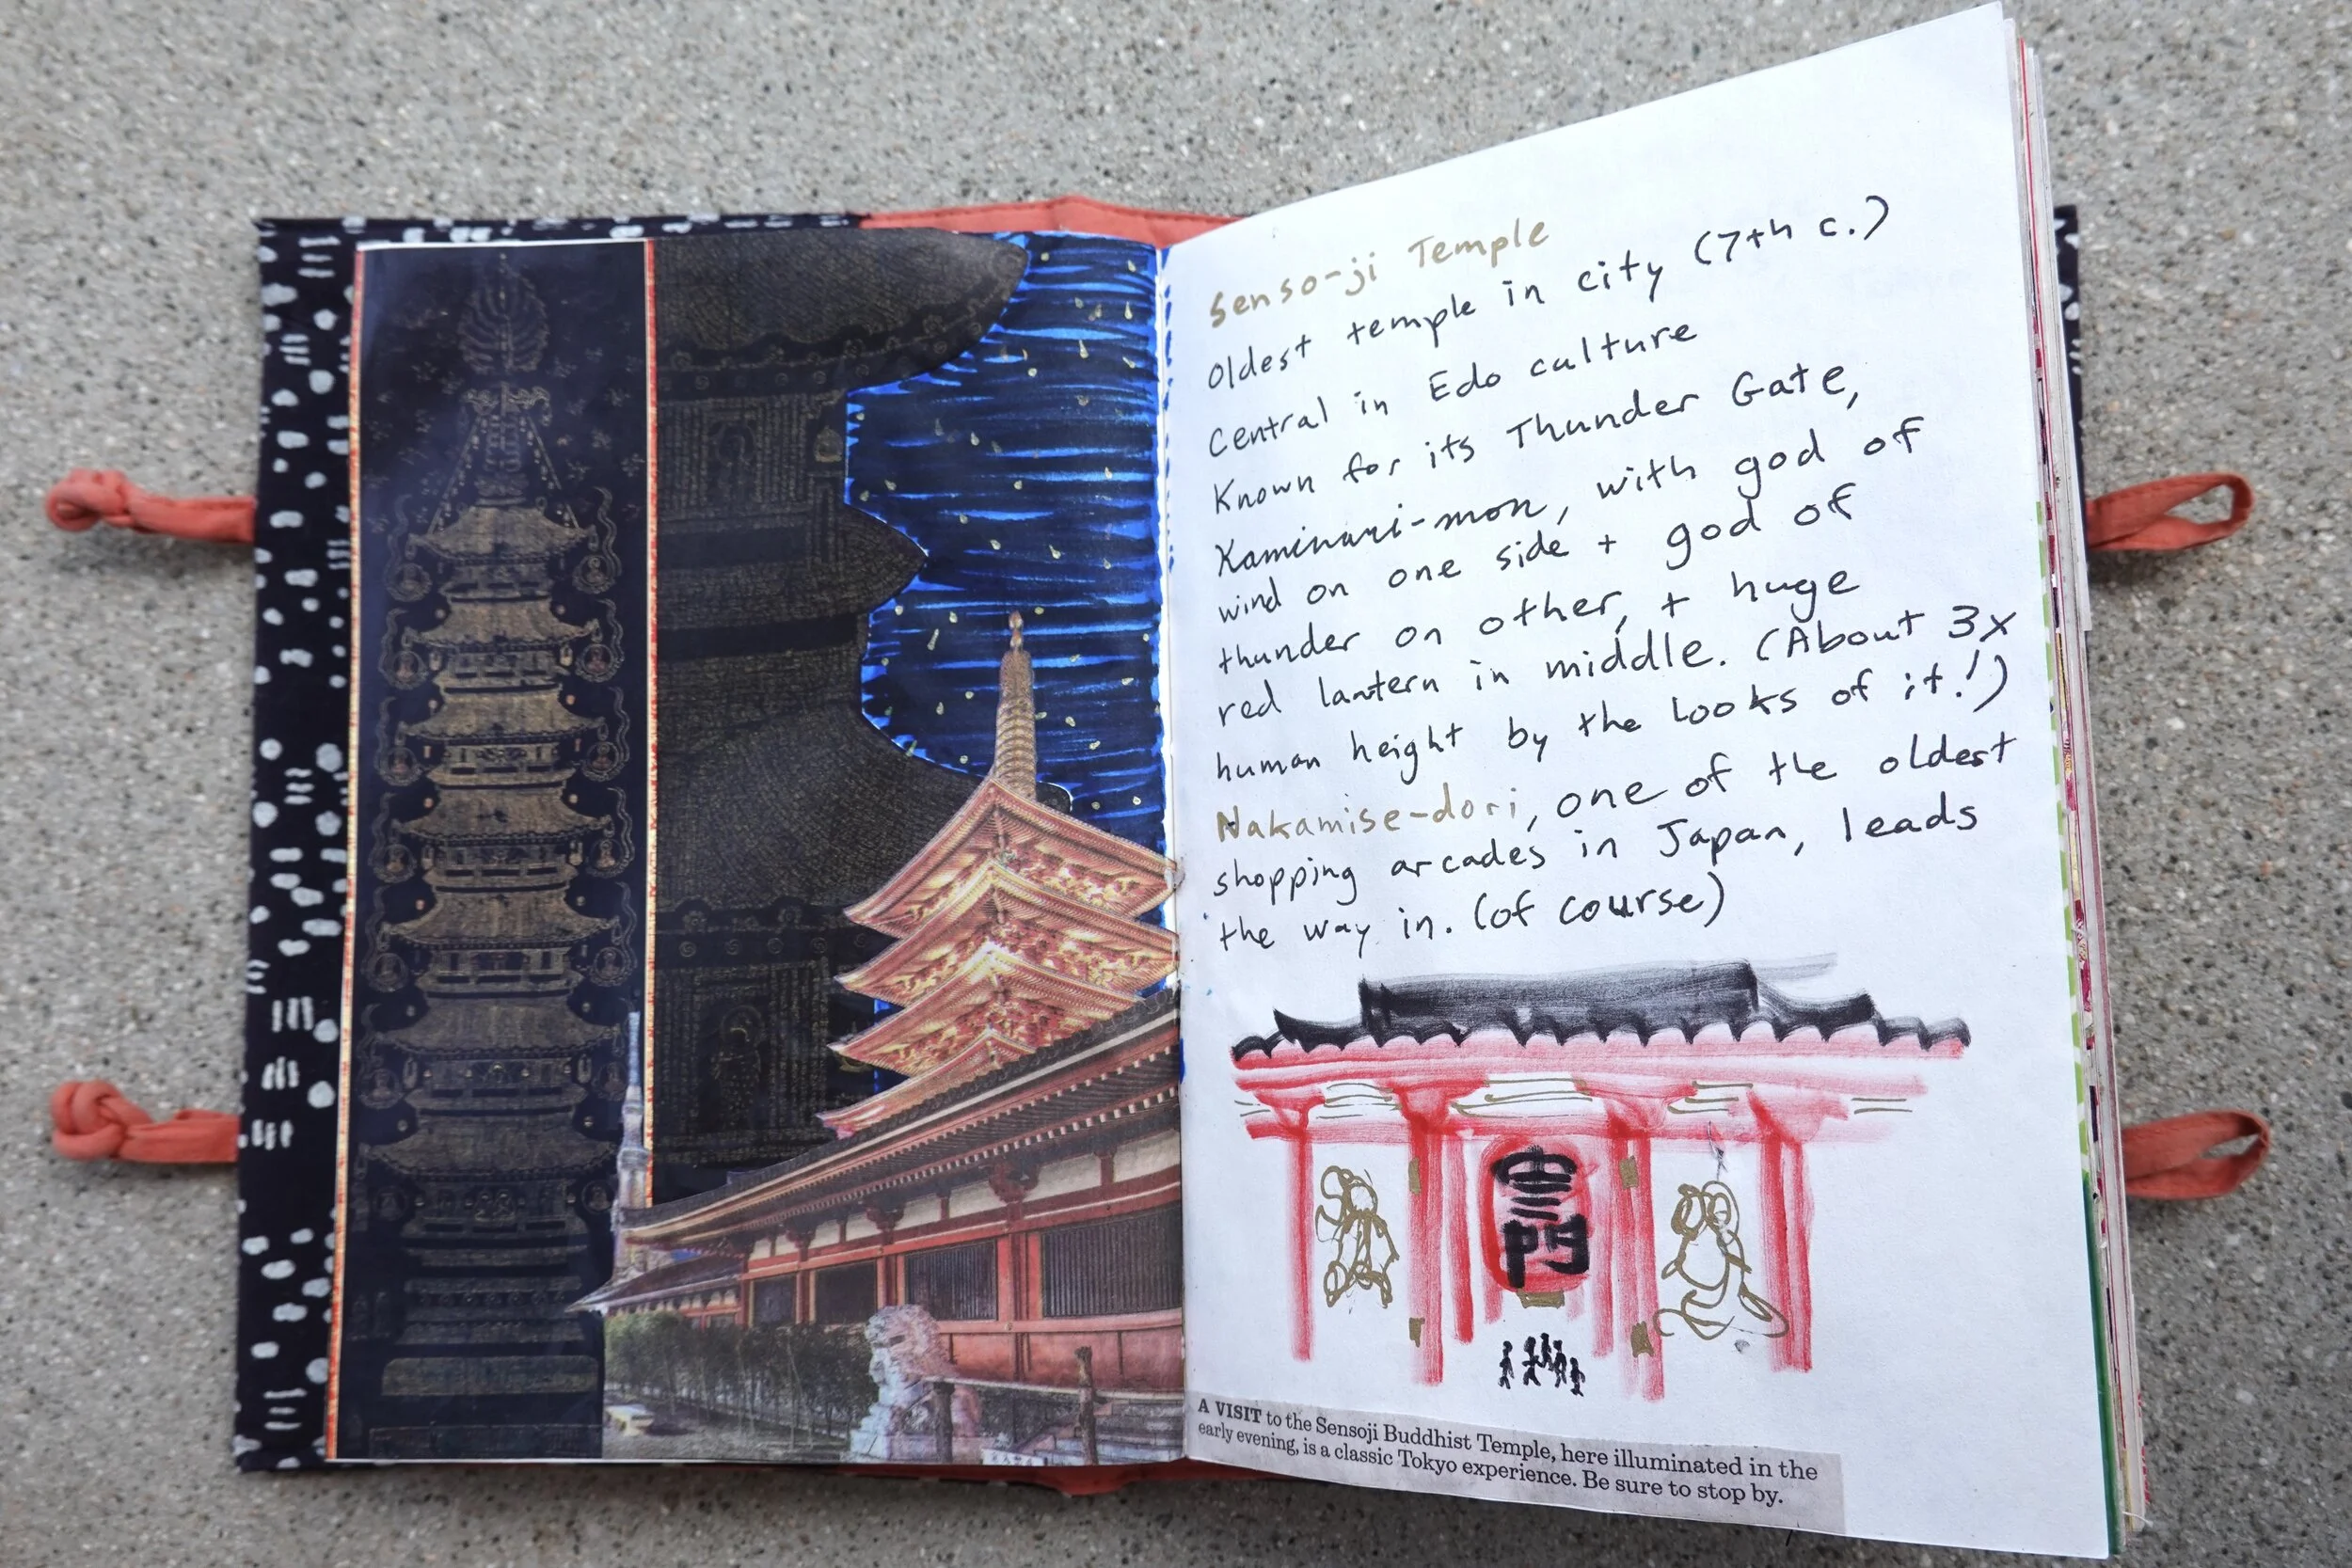 Senso-ji Temple
Oldest temple in city (7th c.)
Central in Edo culture
Known for its Thunder Gate,
Kaminari-mon, with god of
wind on one side + god of
thunder on other, + huge
red lantern in middle. (About 3x
human height by the looks of it!)
Nakamise-dori, one of the oldest
shopping arcades in Japan, leads
the way in. (of course)
雷門
A VISIT to the Sensoji Buddhist Temple, here illuminated in the
early evening, is a classic Tokyo experience. Be sure to stop by.